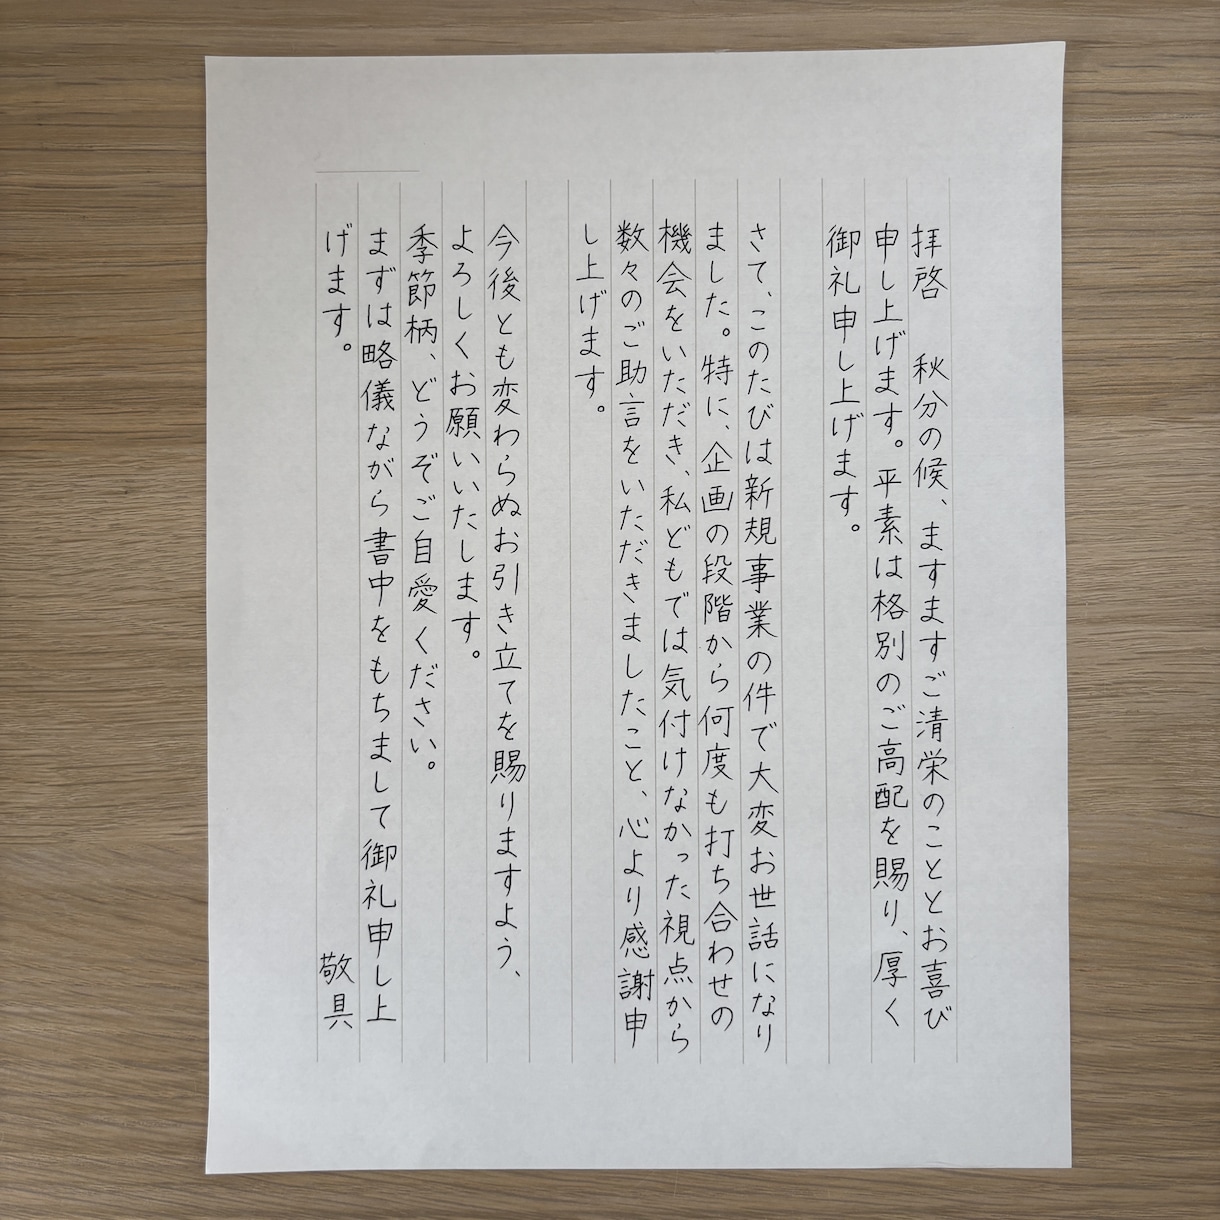 拝啓　秋分の候、ますますご清栄のこととお喜び
申し上げます。平素は格別のご高配を賜り、厚く
御礼申し上げます。
さて、このたびは新規事業の件で大変お世話になり
ました。特に、企画の段階から何度も打ち合わせの
機会をいただき、私どもでは気付けなかった視点から
数々のご助言をいただきましたこと、心より感謝申
し上げます。
今後とも変わらぬお引き立てを賜りますよう、
よろしくお願いいたします。
季節柄、どうぞご自愛ください。
まずは略儀ながら書中をもちまして御礼申し上
げます。
敬具